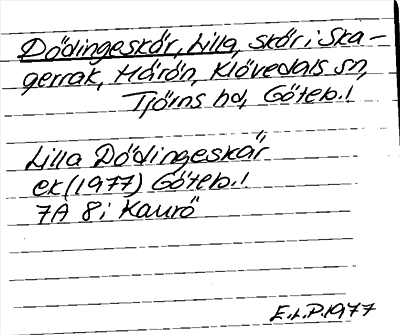 Dödingeskär, Lilla, skär i Ska-
gerrak, Härön, Klövedals sn,
Tjörns hd, Göteb. l
Lilla Dödingeskär
ek (1977) Göteb. l
7A 8i Kaurö
E.L.P. 1977